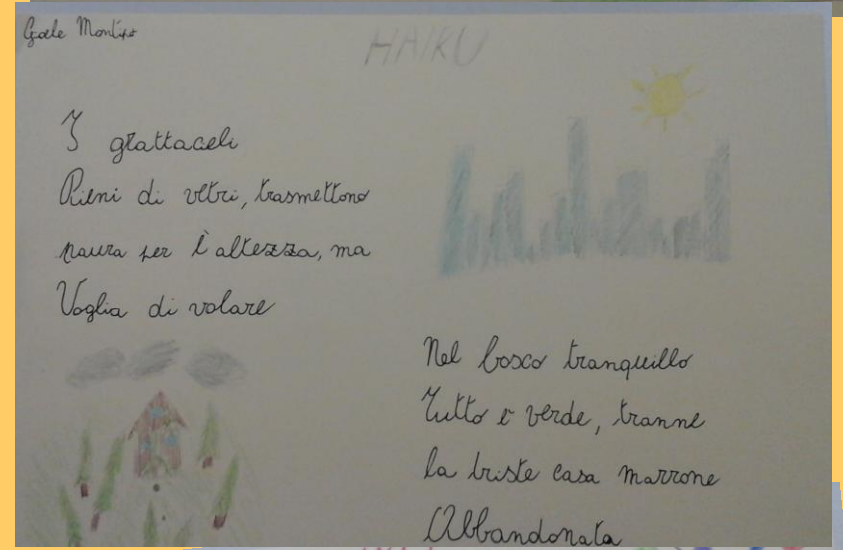 HAIKU
I grattaceli
Pieni di vetri, trasmettono
paura per l'altezza, ma
Voglia di volare
Nel bosco tranquillo
Tutto è verde, tranne
la triste casa marrone
Abbandonata